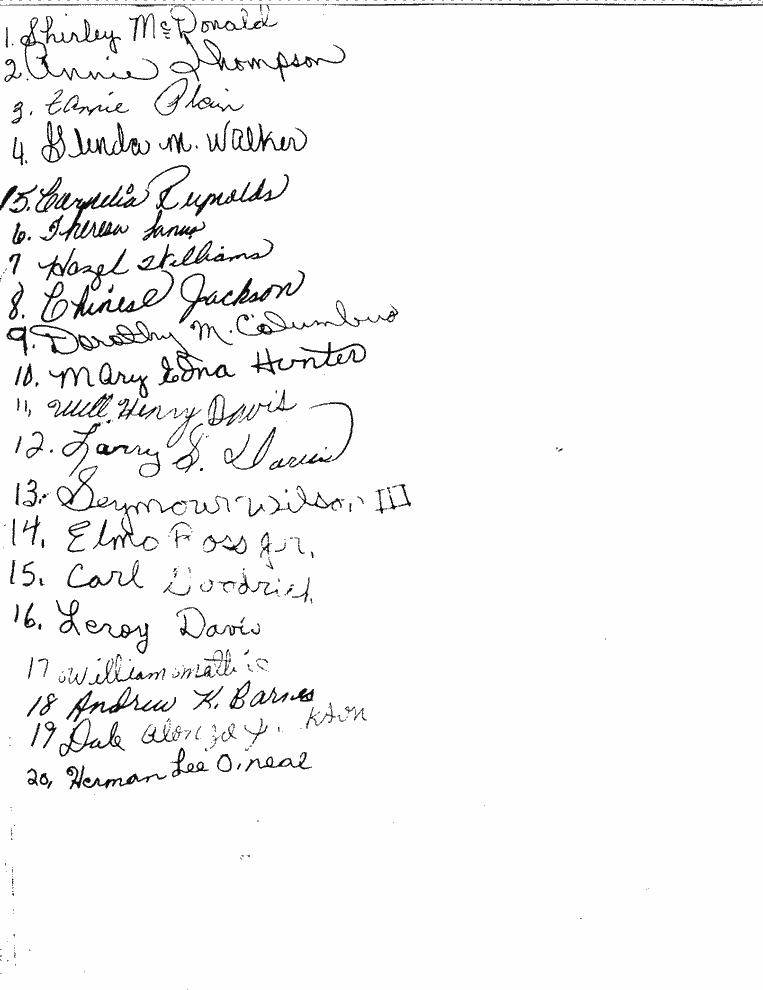 1. Shirley McDonald
2. Annie Thompson
3. Plain
4. Glenda M. Walker
5. Reynolds
6. Theresa
7 Hazel Williams
8. Chinese Jackson
9. Dorothy M. Columbus
10. Mary Edna Hunter
11, Will Henry Davis
12. Larry S. Davis
13. Seymour Wilson III
14. Elmo Ross Jr.
15. Carl Goodrich
16. Leroy Davis
17 William Mathis
18 Andrew K. Barnes
19 Dale
20, Herman Lee O,neal